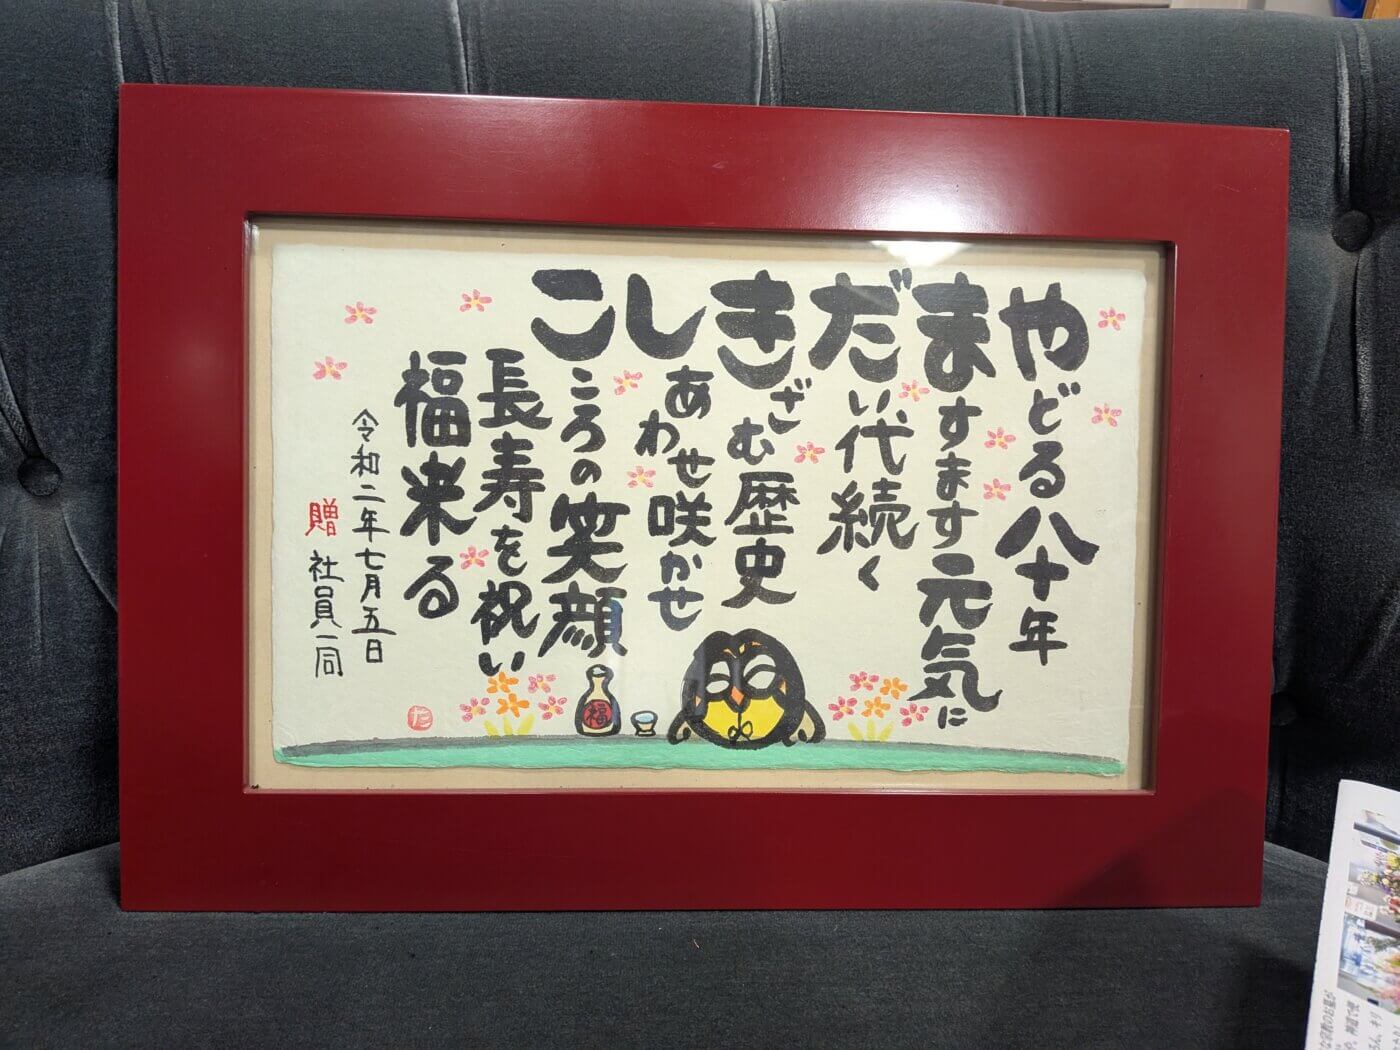 やどる八十年
ますます元気に
だい代続く
きざむ歴史
しあわせ咲かせ
こころの笑顔
長寿を祝い
福来る
令和二年七月五日
贈 社員一同
福